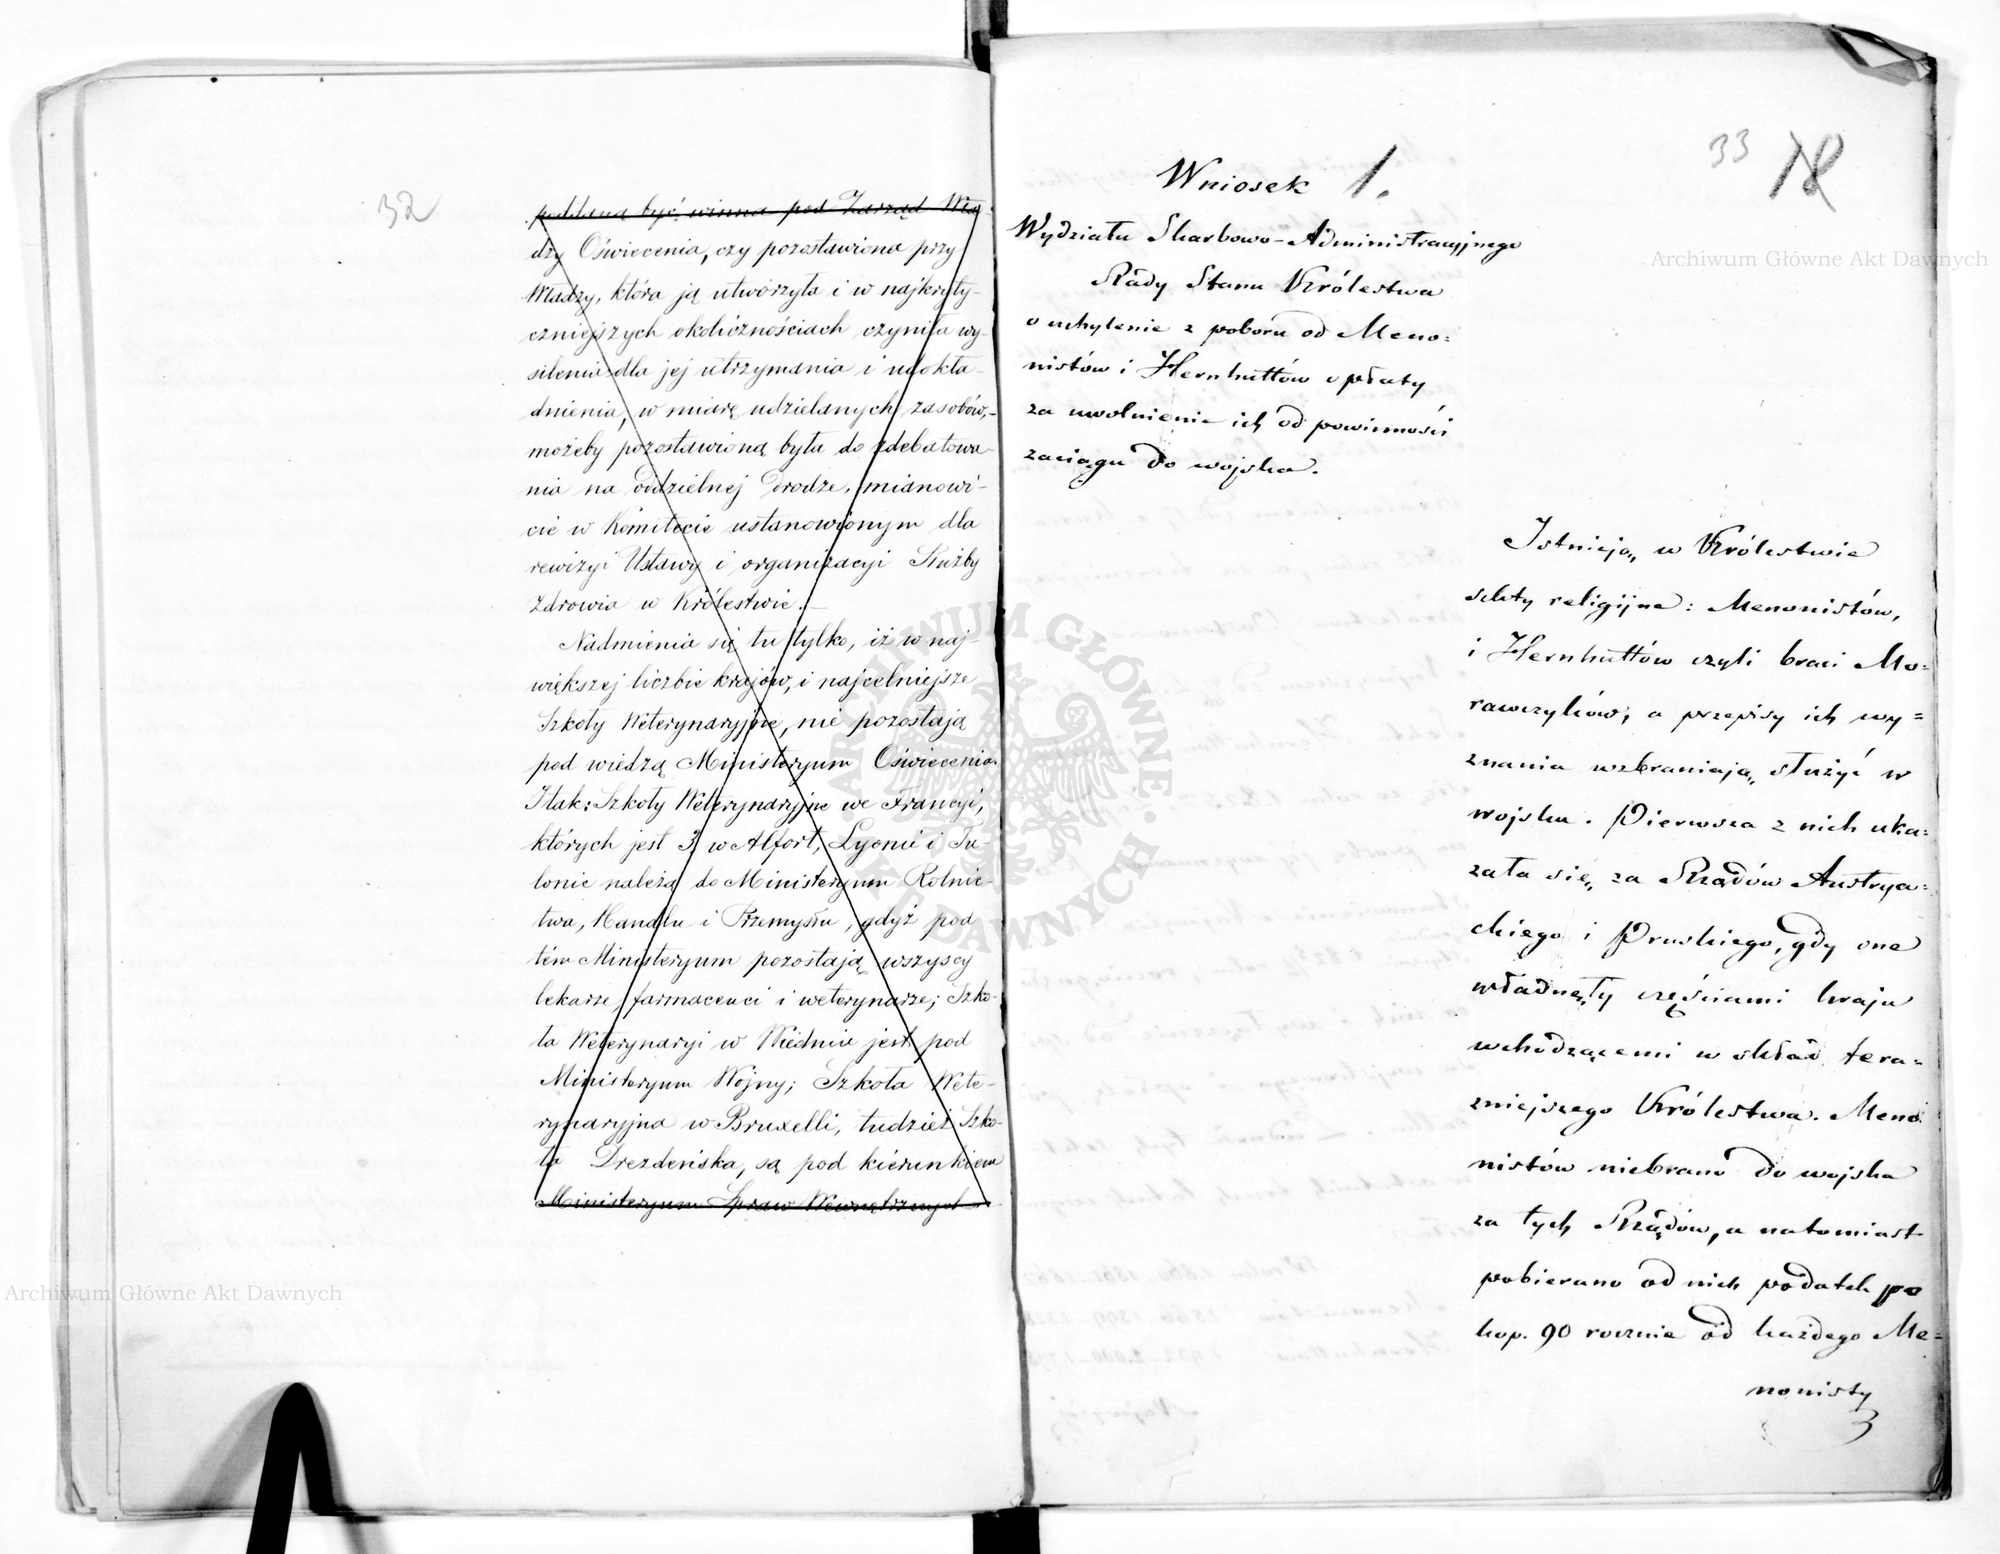 32
poddaną być winna pod Zarząd Wła-
dzy Oświecenia, czy pozostawiona przy
Władzy, która ją utworzyła i w najkryty-
czniejszych okolicznościach czyniła wy-
silenia dla jej utrzymania i udokła-
dnienia, w miarę udzielanych zasobów,-
możeby pozostawioną była do zdebatowa-
nia na oddzielnej drodze, mianowi-
cie w Komitecie ustanowionym dla
rewizyi Ustawy i organizacyi Służby
Zdrowia w Królestwie.—
Nadmienia się tu tylko, iż w naj-
większej liczbie krajów, i najcelniejsze
Szkoły Weterynaryjne, nie pozostają
pod wiedzą Ministeryum Oświecenia.
I tak: Szkoły Weterynaryjne we Francyi,
których jest 3, w Alfort, Lyonie i Tu-
lonie należą do Ministeryum Rolnic-
twa, Handlu i Przemysłu, gdyż pod
tém Ministeryum pozostają wszyscy
lekarze, farmaceuci i weterynarze; Szko-
ła Weterynaryi w Wiedniu jest pod
Ministeryum Wojny; Szkoła Wete-
rynaryjna w Bruxelli, tudzież Szko-
ła Drezdeńska, są pod kierunkiem
Ministeryum Spraw Wewnętrznych
33 18
Wniosek 1.
Wydziału Skarbowo-Administracyjnego
Rady Stanu Królestwa
o uchylenie z poboru od Meno:
nistów i Hernhuttów opłaty
za uwolnienie ich od powinności
zaciągu do wojska.
Istnieją w Królestwie
sekty religijne: Menonistów,
i Hernhuttów czyli braci Mo:
rawczyków, a przepisy ich wy=
znania wzbraniają służyć w
wojsku. Pierwsza z nich uka:
zała się za Rządów Austrya:
ckiego i Pruskiego, gdy one
władnęły częściami kraju
wchodzącemi w skład tera=
zniejszego Królestwa. Meno:
nistów niebrano do wojska
za tych Rządów, a natomiast
pobierano od nich podatek po
kop. 90 rocznie od każdego Me=
nonisty
3
Archiwum Główne Akt Dawnych
Archiwum Główne Akt Dawnych
ARCHIWUM GŁÓWNE AKT DAWNYCH